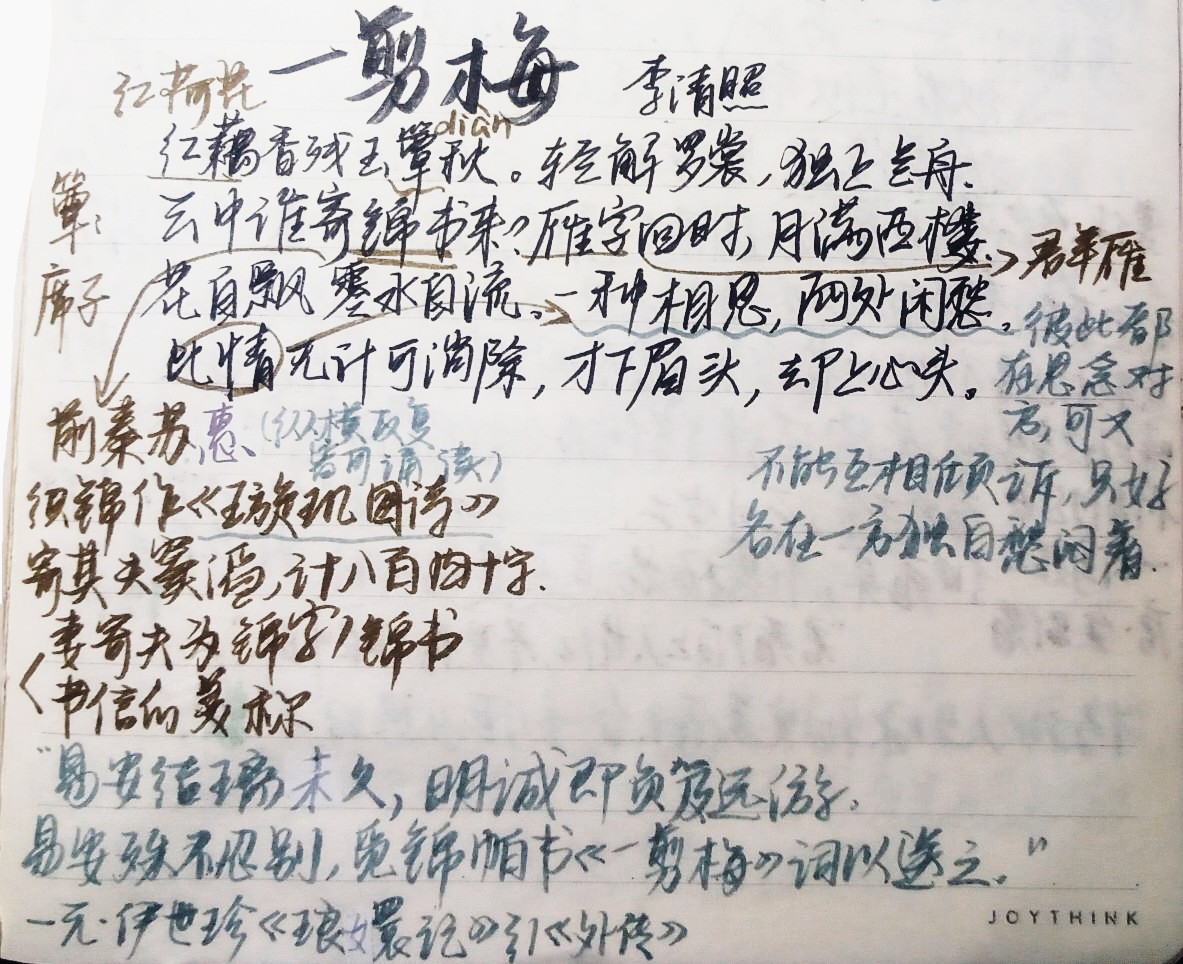 一剪梅 李清照
红荷花
diàn
红藕香残玉簟秋。轻解罗裳,独上兰舟.
云中谁寄锦书来?雁字回时,月满西楼.
花自飘零水自流。一种相思,两处闲愁。
此情无计可消除,才下眉头,却上心头。
簟:
席子
群雁
彼此都
在思念对
方,可又
不能互相倾诉,只好
各在一方独自愁闷着.
前秦苏惠(纵横反复
皆可诵读)
织锦作《璇玑图诗》
寄其夫窦滔,计八百四十字.
妻寄夫为锦字/锦书
书信的美称
“易安结璃未久,明诚即负笈远游.
易安殊不忍别,觅锦帕书《一剪梅》词以送之.”
—元·伊世珍《琅嬛记》引《外传》
JOYTHINK